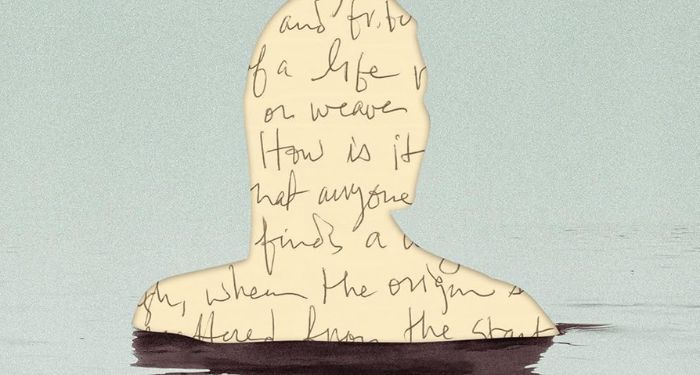 and
of a life
or weaver
How is it
that anyone
finds a
when the origin
from the start